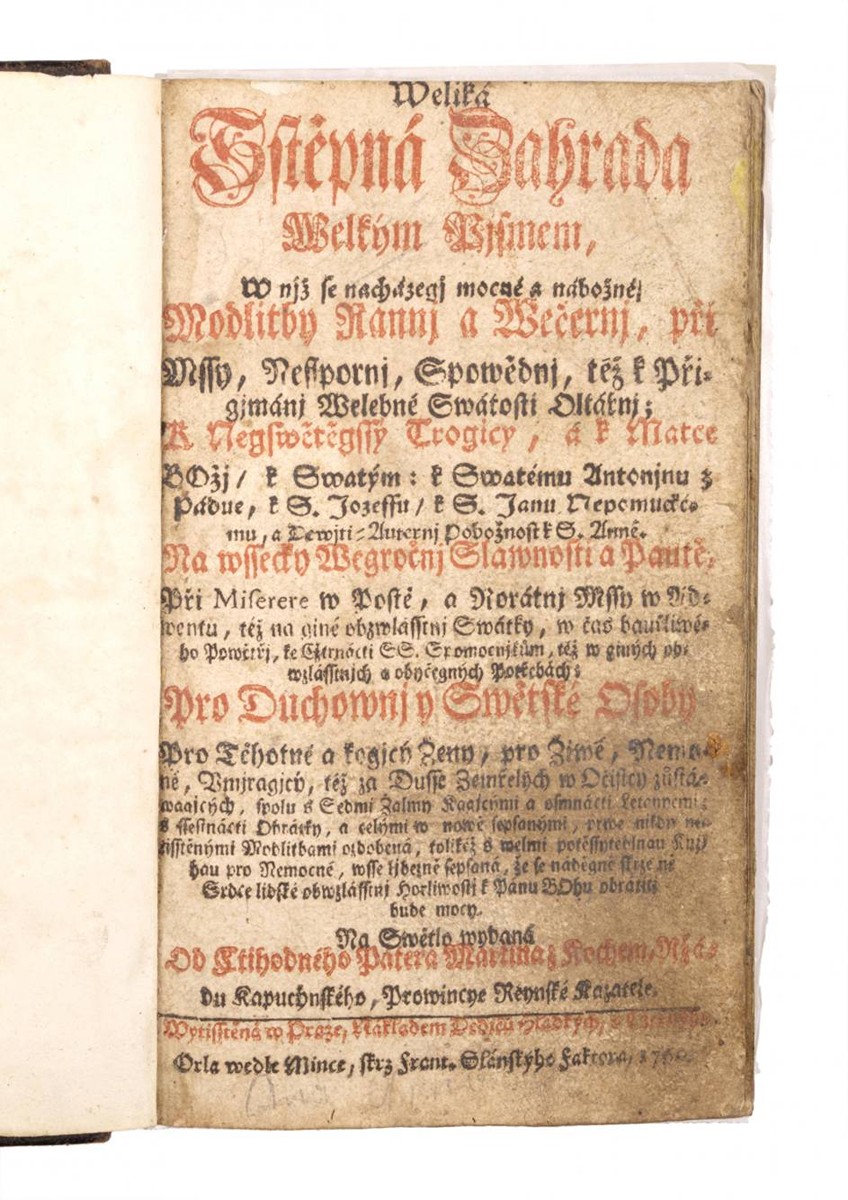 Weliká
Sstěpná Zahrada
Welkým Pjsmem,
W njž se nacházegj mocné a nábožné/
Modlitby Rannj a Wečernj, při
Mssy, Nesspornj, Spowědnj, též k Při-
gjmánj Welebné Swátosti Oltářnj;
K Neyswětěgssy Trogicy, a k Matce
BOžj/ k Swatým: k Swatému Antonjnu z
Pádue, k S. Jozeffu/ k S. Janu Nepomucké-
mu, a Dewjti-Auternj Pobožnost k S. Anně.
Na wssecky Weyročnj Slawnosti a Pautě,
Při Miserere w Postě, a Rorátnj Mssy w Ad-
wentu, též na giné obzwlásstnj Swátky, w čas bauřliwé-
ho Powětřj, ke Cžtrnácti SS. Spomocnjkům, též w giných ob-
wzlásstnjch a obyčegných Potřebách;
Pro Duchownj y Swětské Osoby
Pro Těhotné a kogjcý Ženy, pro Žiwé, Nemo-
né, Vmjragjcý, též za Dusse Zemřelých w Očistcy zůstá-
wagjcých, spolu s Sedmi Žalmy Kagjcými a osmnácti Letanyemi;
s ssestnácti Obrázky, a celými w nowě sepsanými, prwé nikdy ne-
tisstěnými Modlitbami ozdobená, tolikéž s welmi potěssytedlnau Knj-
hau pro Nemocné, wsse ljbezně sepsaná, že se naděgně skrze ně
Srdce lidské obwzlásstnj Horliwostj k Pánu BOhu obrátiti
bude mocy.
Na Swětlo wydaná
Od Ctihodného Patera Martina z Kochem, Ržá-
du Kapucynského, Prowincye Reynské Kazatele.
Wytisstěná w Praze, Nákladem Dědiců Hladkých, u
Orla wedle Mince, skrz Frant. Slánskýho Faktora,